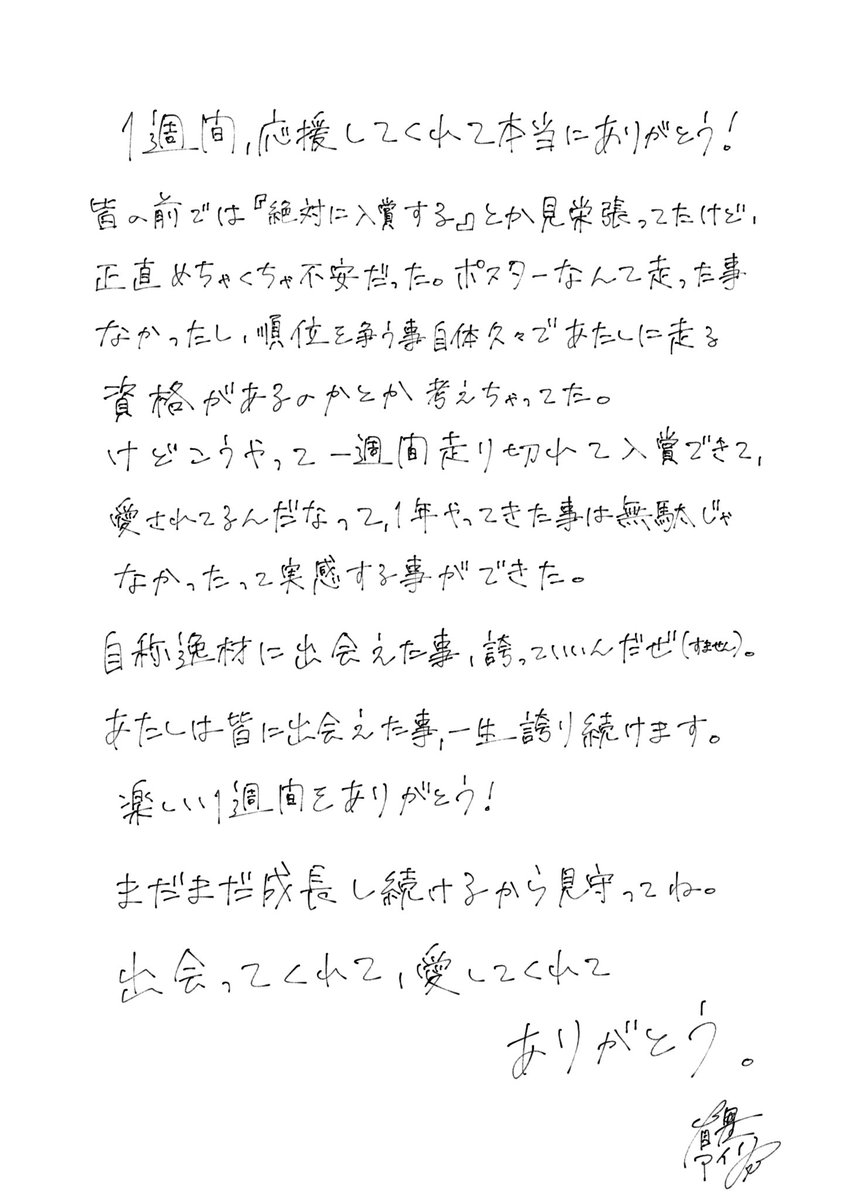 1週間、応援してくれて本当にありがとう!
皆の前では『絶対に入賞する』とか見栄張ってたけど、
正直めちゃくちゃ不安だった。ポスターなんて走った事
なかったし、順位を争う事自体久々であたしに走る
資格があるのかとか考えちゃってた。
けどこうやって一週間走り切れて入賞できて、
愛されてるんだなって、1年やってきた事は無駄じゃ
なかったって実感する事ができた。
自称逸材に出会えた事、誇っていいんだぜ(すません)。
あたしは皆に出会えた事、一生誇り続けます。
楽しい1週間をありがとう!
まだまだ成長し続けるから見守ってね。
出会ってくれて、愛してくれて
ありがとう。